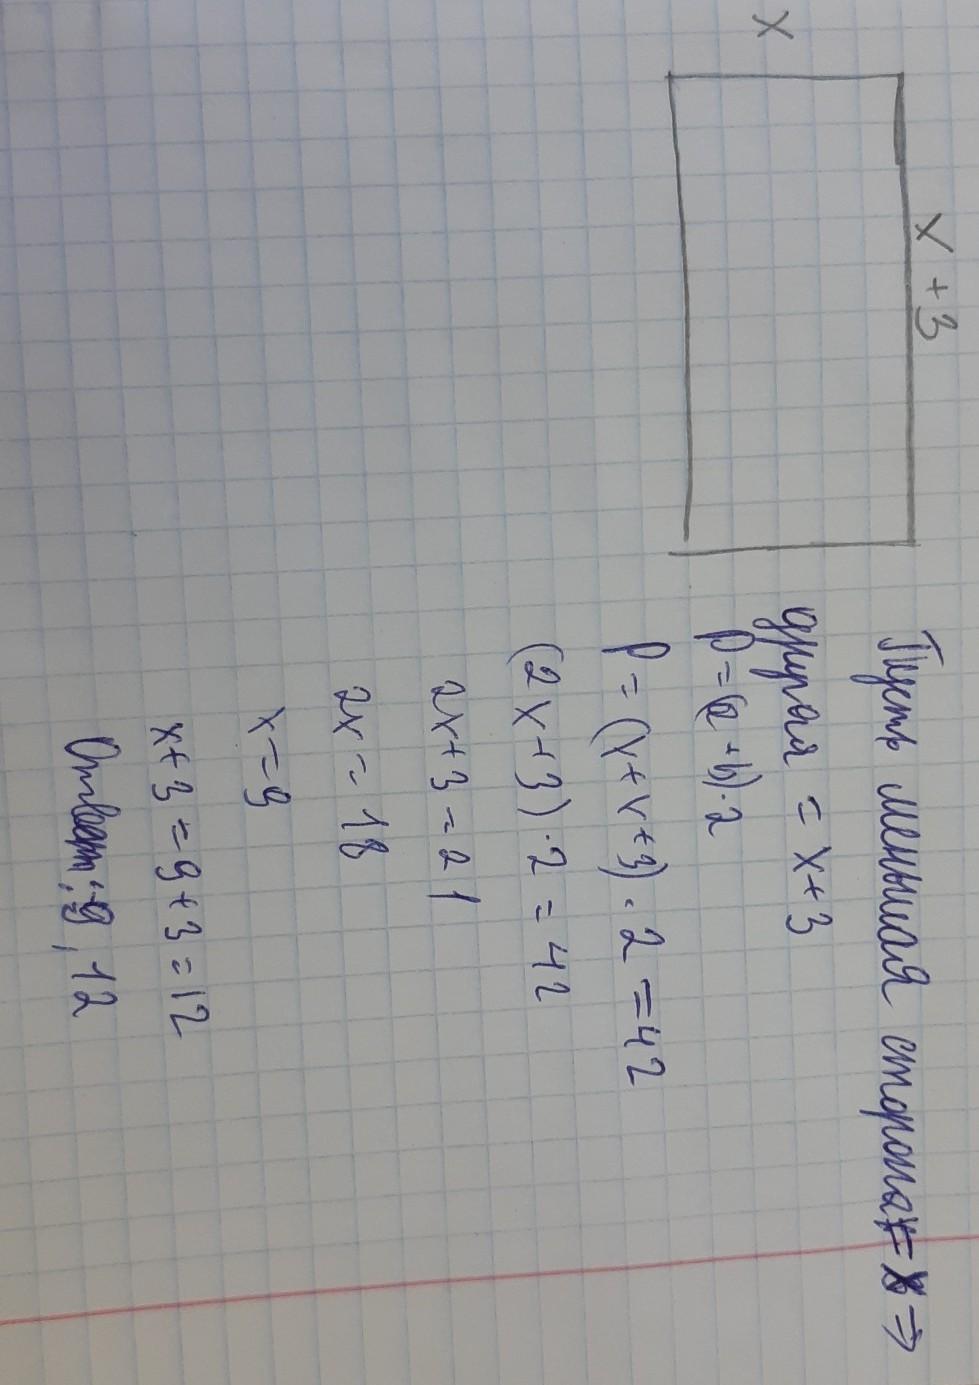 x + 3
x
Пусть меньшая сторона = x ⇒
другая = x+3
P = (a + b)·2
P = (x + x + 3) · 2 = 42
(2x+3)·2 = 42
2x+3 = 21
2x = 18
x = 9
x+3 = 9+3 = 12
Ответ: 9, 12